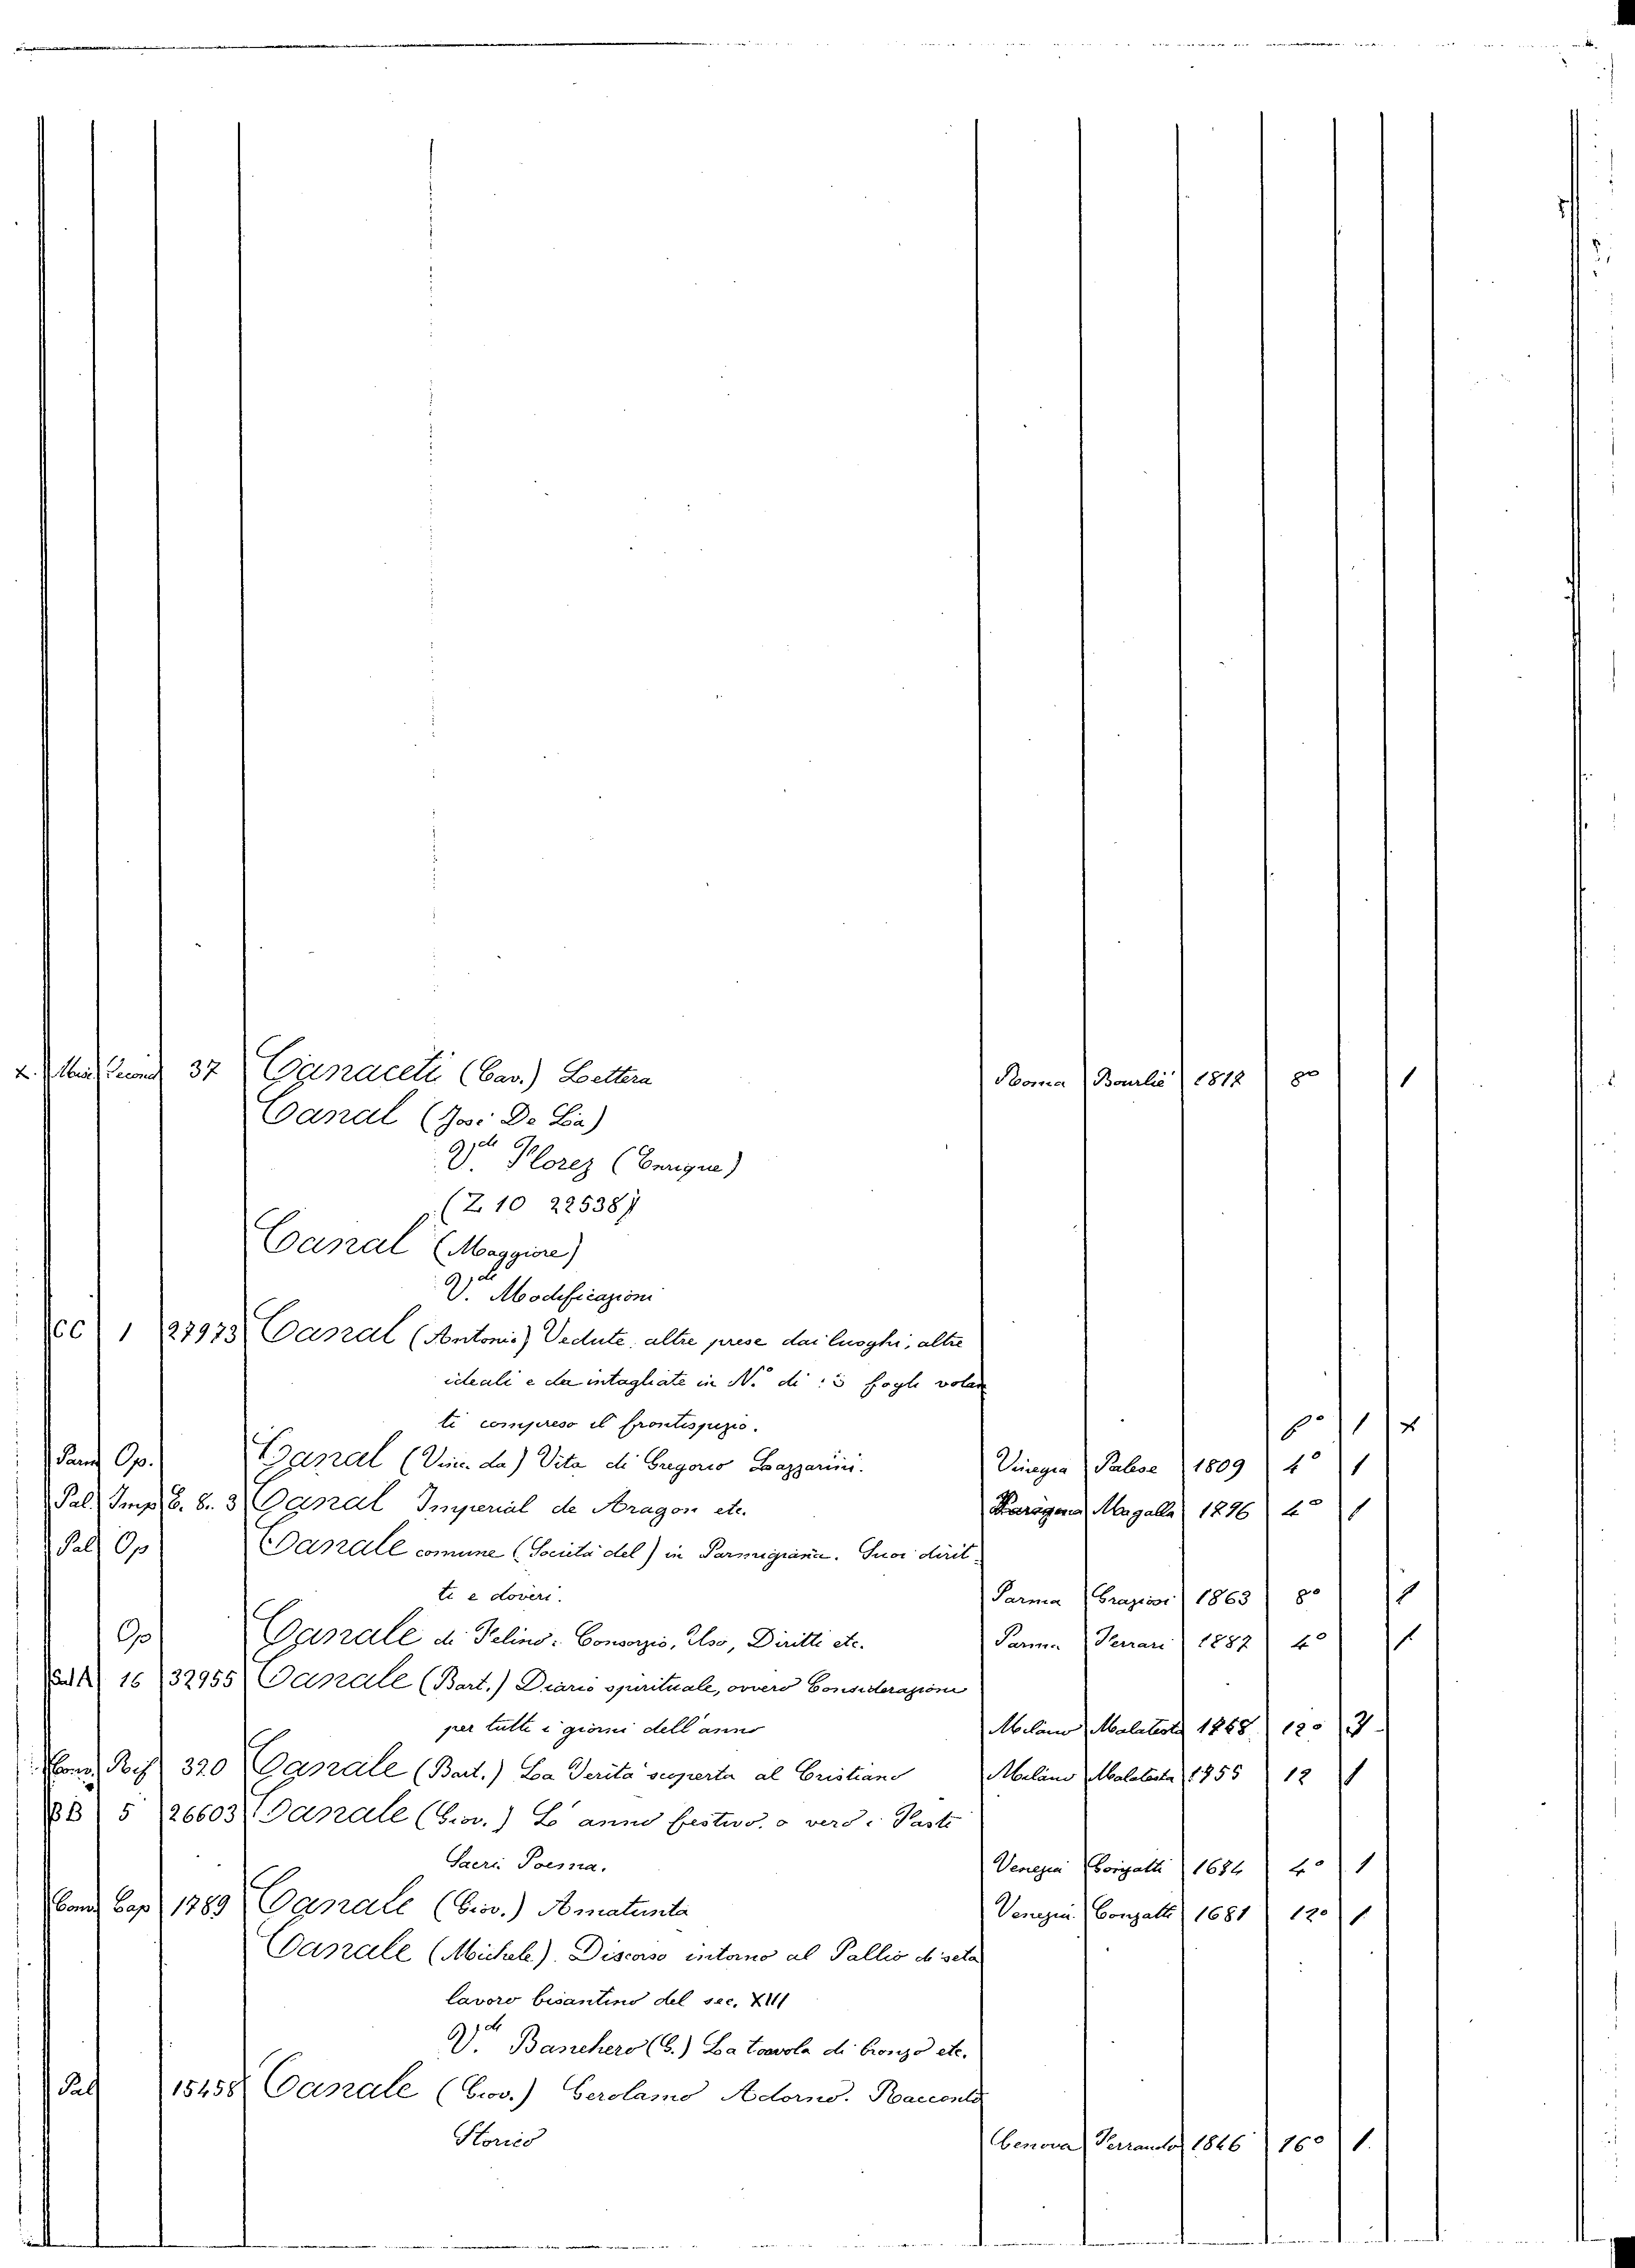 37 Canaceti (Cav.) Lettera Roma Bourlié 1812 8° 1
Canal (José De La)
V.de Florez (Enrique)
(Z. 10 22538)
Canal (Maggiore)
V.de Modificazioni
CC 1 27973 Canal (Antonio) Vedute, altre prese dai luoghi, altre
ideali e da intagliate in N.° di fogli volan
ti compreso il frontespizio. 1
Parm Op. Canal (Vinc. da) Vita di Gregorio Lazzarini. Vinegia Palese 1809 4° 1
Pal. Imp. 3 Canal Imperial de Aragon etc. Magallo 1796 4° 1
Pal Op Canale comune (Società del) in Parmigiana. Suoi dirit
ti e doveri. Parma Grazioni 1863 8° 1
Op Canale di Felino: Consorzio, Uso, Diritti etc. Parma Ferrari 1887 4° 1
16 32955 Canale (Bart.) Diario spirituale, ovvero Considerazioni
per tutti i giorni dell'anno Milano Malatesta 1768 12°
320 Canale (Bart.) La Verità scoperta al Cristiano Milano Malatesta 1755 12 1
BB 5 26603 Canale (Giov.) L'anno festivo, o vero i Fasti
Sacri Poema. Venezia 1684 4° 1
Conv Cap 1789 Canale (Giov.) Amatunta Venezia Conzatti 1681 12° 1
Canale (Michele). Discorso intorno al Pallio di seta
lavoro bisantino del sec. XIII
V.de Banchero (G.) La tavola di bronzo etc.
Pal 15458 Canale (Giov.) Gerolamo Adorno. Racconto
Storico Genova Ferrando 1846 16° 1.